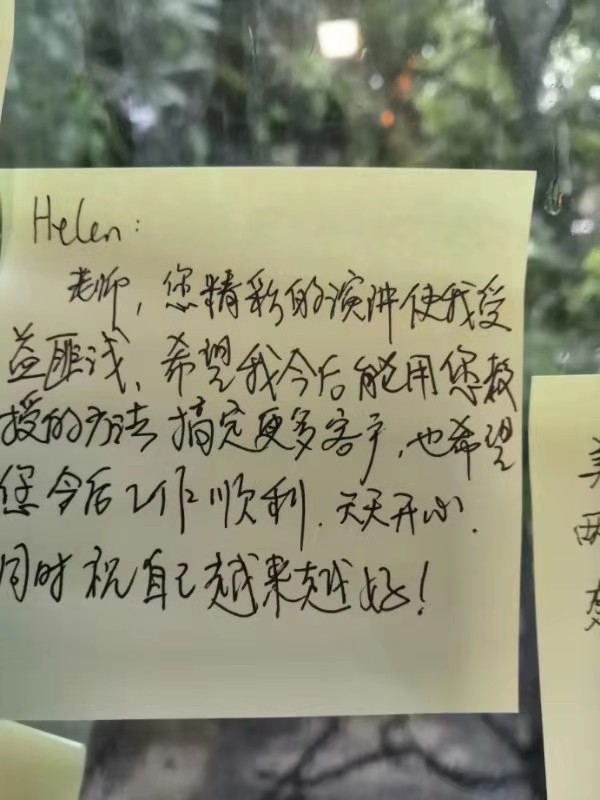 Helen:
老师,您精彩的演讲使我受
益匪浅、希望我今后能用您教
授的方法搞定更多客户,也希望
您今后工作顺利.天天开心.
同时祝自己越来越好!
美
两